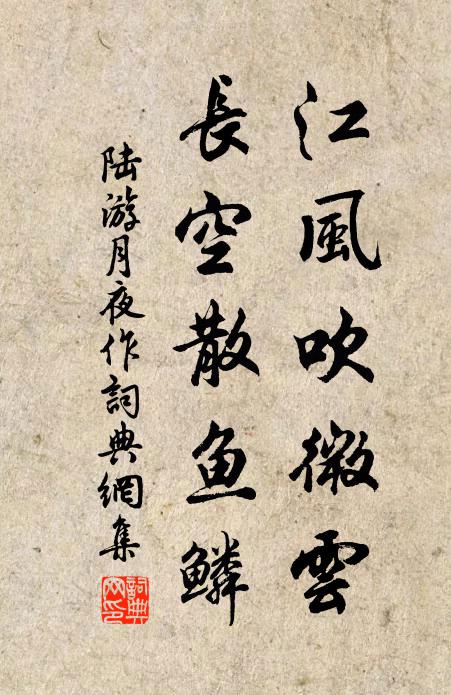 江風吹微雲
長空散魚鱗
陸游月夜作詞典網集
詞典網印